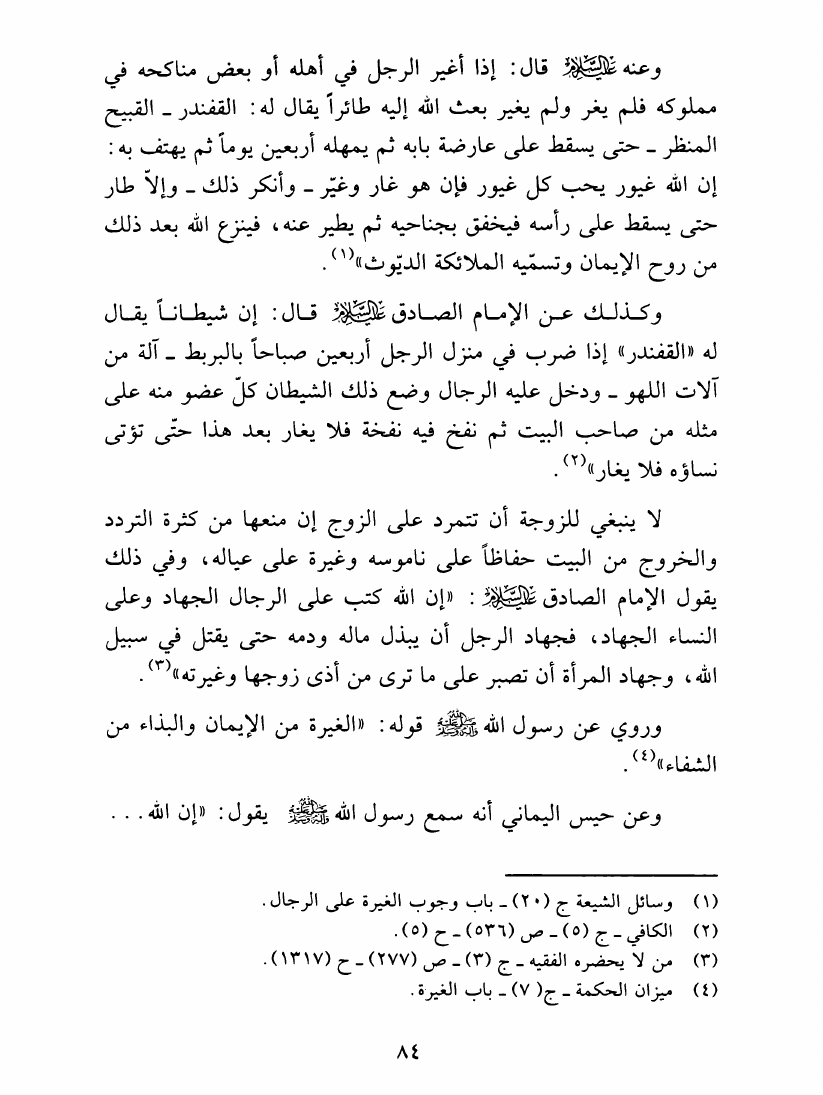 وعنه عليه السلام قال: إذا أغير الرجل في أهله أو بعض مناكحه في
مملوكه فلم يغر ولم يغير بعث الله إليه طائراً يقال له: القفندر ـ القبيح
المنظر ـ حتى يسقط على عارضة بابه ثم يمهله أربعين يوماً ثم يهتف به:
إن الله غيور يحب كل غيور فإن هو غار وغيّر ـ وأنكر ذلك ـ وإلاّ طار
حتى يسقط على رأسه فيخفق بجناحيه ثم يطير عنه، فينزع الله بعد ذلك
من روح الإيمان وتسمّيه الملائكة الديّوث»(١).
وكذلك عن الإمام الصادق عليه السلام قال: إن شيطاناً يقال
له «القفندر» إذا ضرب في منزل الرجل أربعين صباحاً بالبربط ـ آلة من
آلات اللهو ـ ودخل عليه الرجال وضع ذلك الشيطان كلّ عضو منه على
مثله من صاحب البيت ثم نفخ فيه نفخة فلا يغار بعد هذا حتّى تؤتى
نساؤه فلا يغار»(٢).
لا ينبغي للزوجة أن تتمرد على الزوج إن منعها من كثرة التردد
والخروج من البيت حفاظاً على ناموسه وغيرة على عياله، وفي ذلك
يقول الإمام الصادق عليه السلام: «إن الله كتب على الرجال الجهاد وعلى
النساء الجهاد، فجهاد الرجل أن يبذل ماله ودمه حتى يقتل في سبيل
الله، وجهاد المرأة أن تصبر على ما ترى من أذى زوجها وغيرته»(٣).
وروي عن رسول الله صلى الله عليه وآله وسلم قوله: «الغيرة من الإيمان والبذاء من
الشفاء»(٤).
وعن حيس اليماني أنه سمع رسول الله صلى الله عليه وآله وسلم يقول: «إن الله...
(١) وسائل الشيعة ج (٢٠) ـ باب وجوب الغيرة على الرجال.
(٢) الكافي ـ ج (٥) ـ ص (٥٣٦) ـ ح (٥).
(٣) من لا يحضره الفقيه ـ ج (٣) ـ ص (٢٧٧) ـ ح (١٣١٧).
(٤) ميزان الحكمة ـ ج( ٧) ـ باب الغيرة.
٨٤